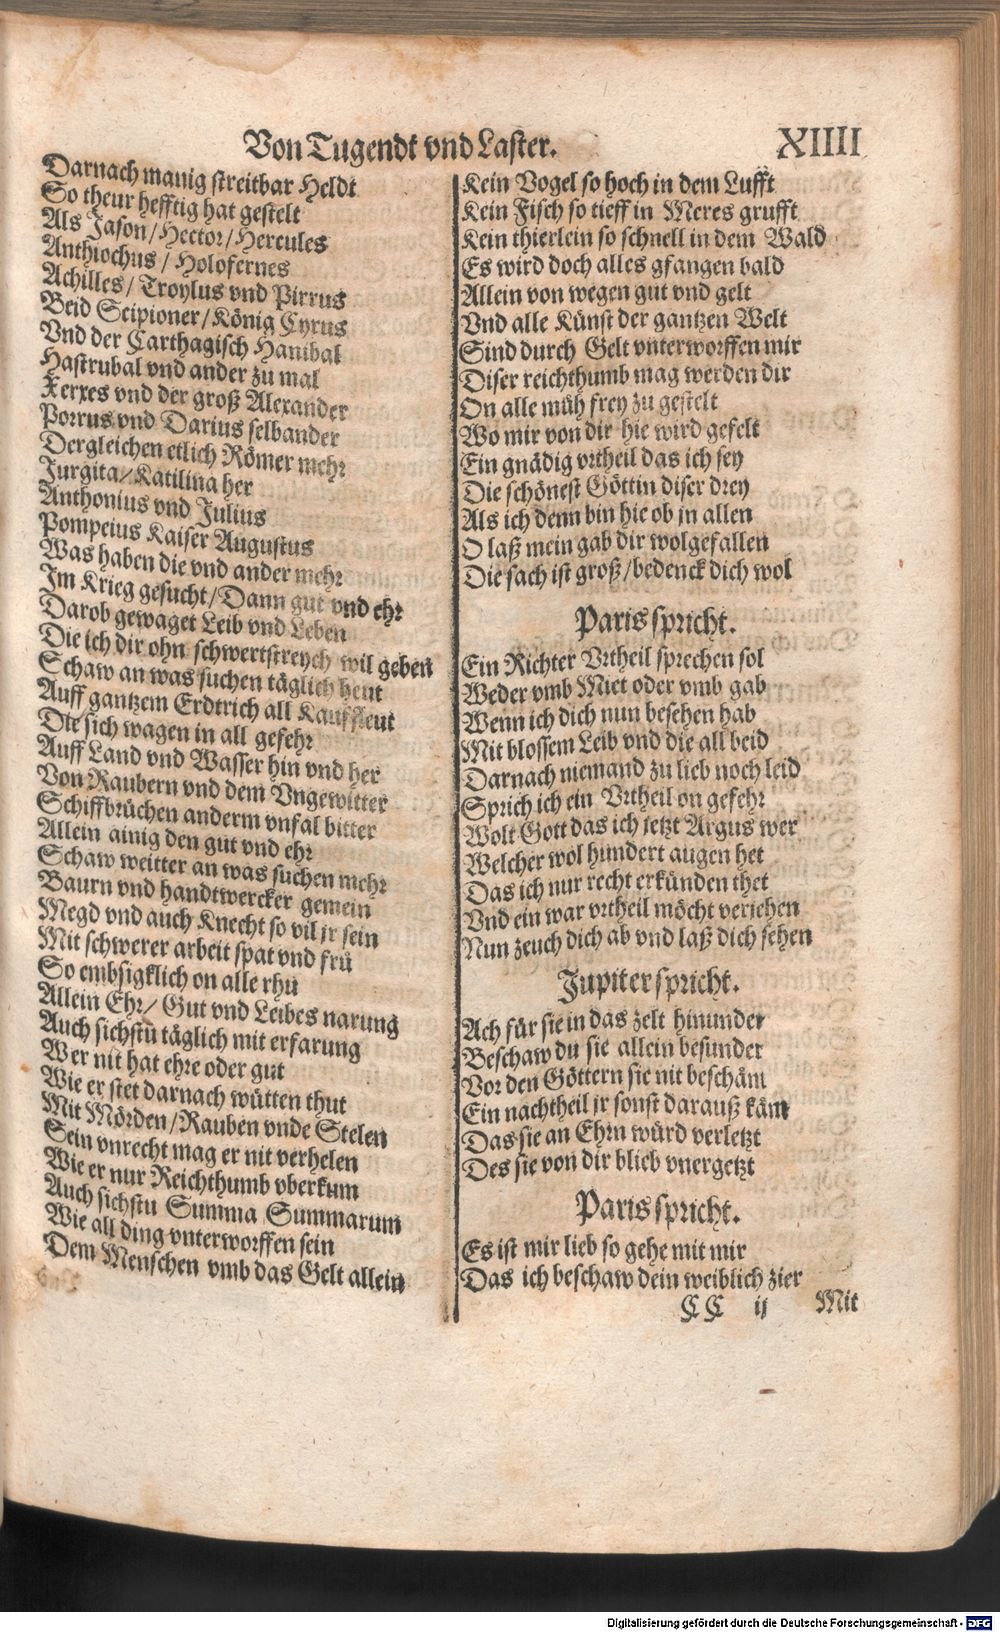 Von Tugendt vnd Laster.
XIIII
Darnach manig streitbar Heldt
So theur hefftig hat gestelt
Als Jason/Hector/Hercules
Anthiochus/ Holofernes
Achilles/ Troylus vnd Pirrus
Beid Scipioner/König Cyrus
Vnd der Carthagisch Hanibal
Hastrubal vnd ander zu mal
Xerxes vnd der groß Alexander
Porrus vnd Darius selbander
Dergleichen etlich Römer mehr
Jurgita/Katilina her
Anthonius vnd Julius
Pompeius Kaiser Augustus
Was haben die vnd ander mehr
Im Krieg gesucht/Dann gut vnd ehr
Darob gewaget Leib vnd Leben
Die ich dir ohn schwertstreych wil geben
Schaw an was suchen täglich heut
Auff gantzem Erdtrich all Kauffleut
Die sich wagen in all gefehr
Auff Land vnd Wasser hin vnd her
Von Raubern vnd dem Vngewitter
Schiffbrüchen anderm vnfal bitter
Allein ainig den gut vnd ehr
Schaw weitter an was suchen mehr
Baurn vnd handtwercker gemein
Megd vnd auch Knecht so vil jr sein
Mit schwerer arbeit spat vnd frü
So embsigklich on alle rhu
Allein Ehr/ Gut vnd Leibes narung
Auch sichstu täglich mit erfarung
Wer nit hat ehre oder gut
Wie er stet darnach wütten thut
Mit Mörden/Rauben vnde Stelen
Sein vnrecht mag er nit verhelen
Wie er nur Reichthumb vberkum
Auch sichstu Summa Summarum
Wie all ding vnterworffen sein
Dem Menschen vmb das Gelt allein
Kein Vogel so hoch in dem Lufft
Kein Fisch so tieff in Meres grufft
Kein thierlein so schnell in dem Wald
Es wird doch alles gfangen bald
Allein von wegen gut vnd gelt
Vnd alle Künst der gantzen Welt
Sind durch Gelt vnterworffen mir
Diser reichthumb mag werden dir
On alle müh frey zu gestelt
Wo mir von dir hie wird gefelt
Ein gnädig vrtheil das ich sey
Die schönest Göttin diser drey
Als ich denn bin hie ob jn allen
O laß mein gab dir wolgefallen
Die sach ist groß/bedenck dich wol
Paris spricht.
Ein Richter Vrtheil sprechen sol
Weder vmb Miet oder vmb gab
Wenn ich dich nun besehen hab
Mit blossem Leib vnd die all beid
Darnach niemand zu lieb noch leid
Sprich ich ein Vrtheil on gefehr
Wolt Gott das ich jetzt Argus wer
Welcher wol hundert augen het
Das ich nur recht erkünden thet
Vnd ein war vrtheil möcht veriehen
Nun zeuch dich ab vnd laß dich sehen
Jupiter spricht.
Ach für sie in das zelt hinunder
Beschaw du sie allein besunder
Vor den Göttern sie nit beschäm
Ein nachtheil jr sonst darauß käm
Das sie an Ehrn würd verletzt
Des sie von dir blieb vnergetzt
Paris spricht.
Es ist mir lieb so gehe mit mir
Das ich beschaw dein weiblich zier
CC ij
Mit
Digitalisierung gefördert durch die Deutsche Forschungsgemeinschaft - DFG